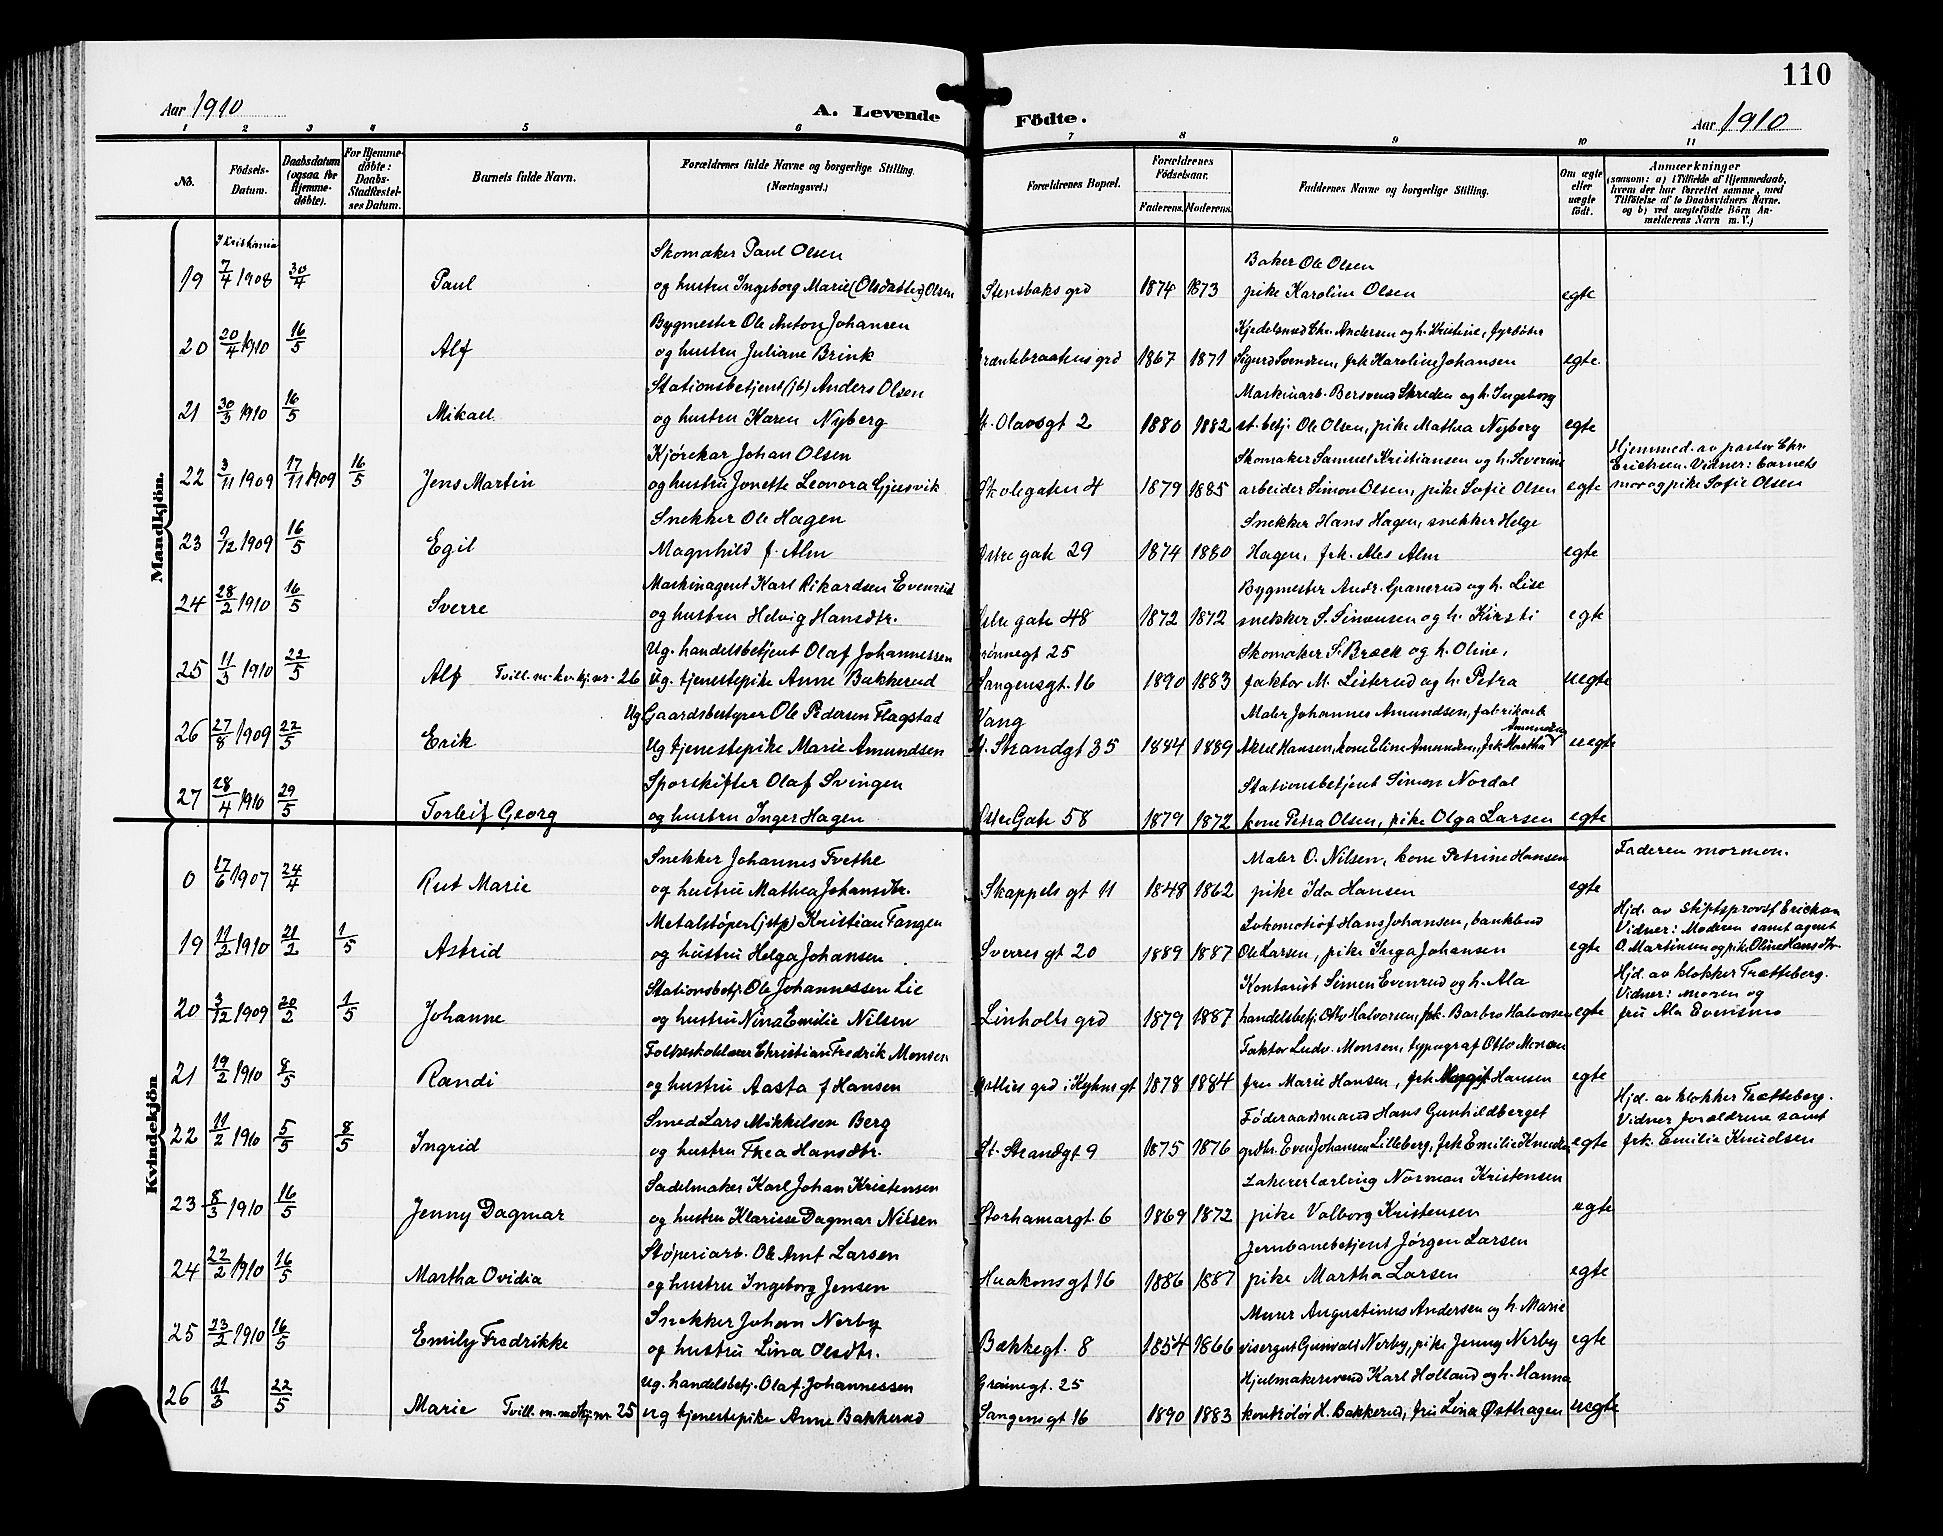 110
Aar 1910 A. Levende Födte. Aar 1910
1 2 3 4 5 6 7 8 9 10 11
No. Födsels-Datum. Daabsdatum (ogsaa for Hjemme-döbte). For Hjemme-döbte: Daabs-Stadfæstel-ses Datum. Barnets fulde Navn. Forældrenes fulde Navne og borgerlige Stilling. (Næringsvei.) Forældrenes Bopæl. Forældrenes Födselsaar. Faderens. Moderens. Faddernes Navne og borgerlige Stilling. Om ægte eller uægte födt. Anmærkninger (saasom: a) i Tilfælde af Hjemmedaab, hvem der har forrettet samme, med Tilföielse af to Daabsvidners Navne. og b) ved uægtefödte Börn An-melderens Navn m. V.)
Mandkjön.
I Kristiania Skomaker Paul Olsen Baker Ole Olsen
19 7/4 1908 30/4 Paul og hustru Ingeborg Marie (Olsdatter) Olsen Stensbaks grd 1874 1873 pike Karoline Olsen egte
Bygmester Ole Anton Johansen Kjedelsmed Chr. Andersen og h. Kristine, fyrbøter
20 20/4 1910 16/5 Alf og hustru Juliane Brink Bræntebraatens grd 1867 1871 Sigurd Svendsen, frk Karoline Johansen egte
Stationsbetjent (jb) Anders Olsen Maskinarb. Bersvend Skreden og h. Ingeborg
21 30/3 1910 16/5 Mikael og hustru Karen Nyberg St. Olavsgt 2 1880 1882 st. betj. Ole Olsen, pike Mathea Nyberg egte
Kjørekar Johan Olsen Skomaker Samuel Kristiansen og h. Severine Hjemmed. av pastor Chr.
22 3/11 1909 17/11 1909 16/5 Jens Martin og hustru Jonette Leonora Gjesvik Skolegaten 4 1879 1885 arbeider Simon Olsen, pike Sofie Olsen egte Erichsen. Vidner: barnets
mor og pike Sofie Olsen
Snekker Ole Hagen Snekker Hans Hagen, snekker Helge
23 9/12 1909 16/5 Egil Magnhild f. Alm Østre gate 29 1874 1880 Hagen, frk. Ales Alm egte
Maskinagent Karl Rikardsen Evenrud Bygmester Andr. Granerud og h. Lise
24 28/2 1910 16/5 Sverre og hustru Helvig Hansdtr. Østre gate 48 1872 1872 snekker S. Simensen og h. Kirsti egte
Ug. handelsbetjent Olaf Johannessen Grønnegt 25 Skomaker S. Bræck og h. Oline,
25 11/3 1910 22/5 Alf Tvill. m. kv. kj. nr. 26 Ug. tjenestepike Anne Bakkerud Vangensgt. 16 1890 1883 faktor M. Listerud og h. Petra uegte
Ug Gaardsbestyrer Ole Pedersen Flagstad Vang Maler Johannes Amundsen, fabrikarb
26 27/8 1909 22/5 Erik Ug tjenestepike Marie Amundsen St. Strandgt 35 1884 1889 Aksel Hansen, kone Eline Amundsen, frk Martha Amundsen uegte
Sporskifter Olaf Svingen Stationsbetjent Simon Nordal
27 28/4 1910 29/5 Torleif Georg og hustru Inger Hagen Østre Gate 58 1879 1872 kone Petra Olsen, pike Olga Larsen egte
Kvindekjön
Snekker Johannes Tvethe Maler O. Nilsen, kone Petrine Hansen Faderen mormon.
0 17/6 1907 24/4 Rut Marie og hustru Mathea Johansdtr. Skappels gt 11 1848 1862 pike Ida Hansen egte
Metalstøper (jstp) Kristian Tangen Lokomotivf Hans Johansen, bankbud Hjd. av stiftsprovst Ericksen
19 11/2 1910 21/2 1/5 Astrid og hustru Helga Johansen Sverres gt 20 1889 1887 Ole Larsen, pike Inga Johansen egte Vidner: Moderen samt agent
O. Martinsen og pike Oline Hansdtr
Stationsbetj. Ole Johannessen Lie Kontorist Simen Evenrud og h. Ala Hjd. av klokker Trætteberg.
20 3/12 1909 20/2 1/5 Johanne og hustru Nina Emilie Nilsen Linholts grd 1879 1887 handelsbetj. Otto Halvorsen, frk. Barbro Halvorsen egte Vidner: moren og
fru Ala Evenrud
Folkeskolelærer Christian Fredrik Monsen Faktor Ludv. Monsen, typograf Otto Monsen
21 19/2 1910 8/5 Randi og hustru Aasta f Hansen Østlies grd i Kyhns gt 1878 1884 fru Marie Hansen, frk Margit Hansen egte
Smed Lars Mikkelsen Berg Føderaadsmand Hans Gunhildberget Hjd. av klokker Trætteberg.
22 11/2 1910 5/5 8/5 Ingrid og hustru Thea Hansdtr. St. Strandgt 9 1875 1876 grdbr. Even Johansen Lilleberg, frk Emilie Knudsen egte Vidner forældrene samt
frk. Emilie Knudsen
Sadelmaker Karl Johan Kristensen Lakererlærling Norman Kristensen
23 8/3 1910 16/5 Jenny Dagmar og hustru Klarisse Dagmar Nilsen Storhamargt. 6 1869 1872 pike Valborg Kristensen egte
Støperiarb. Ole Arnt Larsen Jernbanebetjent Jørgen Larsen
24 22/2 1910 16/5 Martha Ovidia og hustru Ingeborg Jensen Haakons gt 16 1886 1887 pike Martha Larsen egte
Snekker Johan Nerby Murer Augustinus Andersen og h. Marie
25 23/2 1910 16/5 Emily Fredrikke og hustru Lina Olsdtr. Bækkegt. 8 1854 1866 visergut Gunvald Nerby, pike Jenny Nerby egte
Ug. handelsbetj. Olaf Johannessen Grønnegt. 25 Hjulmakersvend Karl Holland og h. Hanna
26 11/3 22/5 Marie Tvill. m. mdkj. nr. 25 Ug tjenestepike Anne Bakkerud Vangensgt 16 1890 1883 kontrolør H. Bakkerud, fru Lina Østhagen uegte